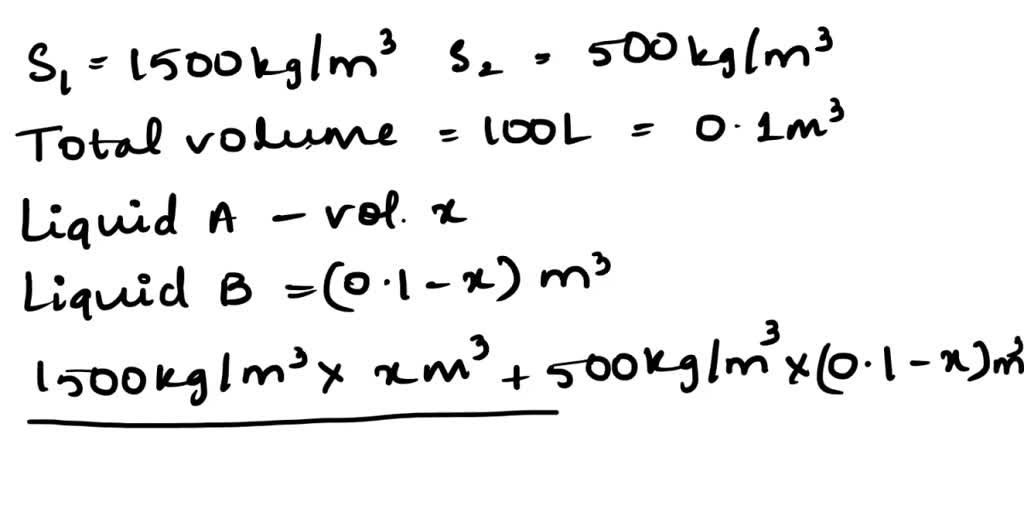 S₁ = 1500kg/m³ S₂ = 500kg/m³
Total volume = 100L = 0.1m³
Liquid A – vol. x
Liquid B = (0.1 – x) m³
1500kg/m³ × xm³ + 500kg/m³ × (0.1 – x)m³